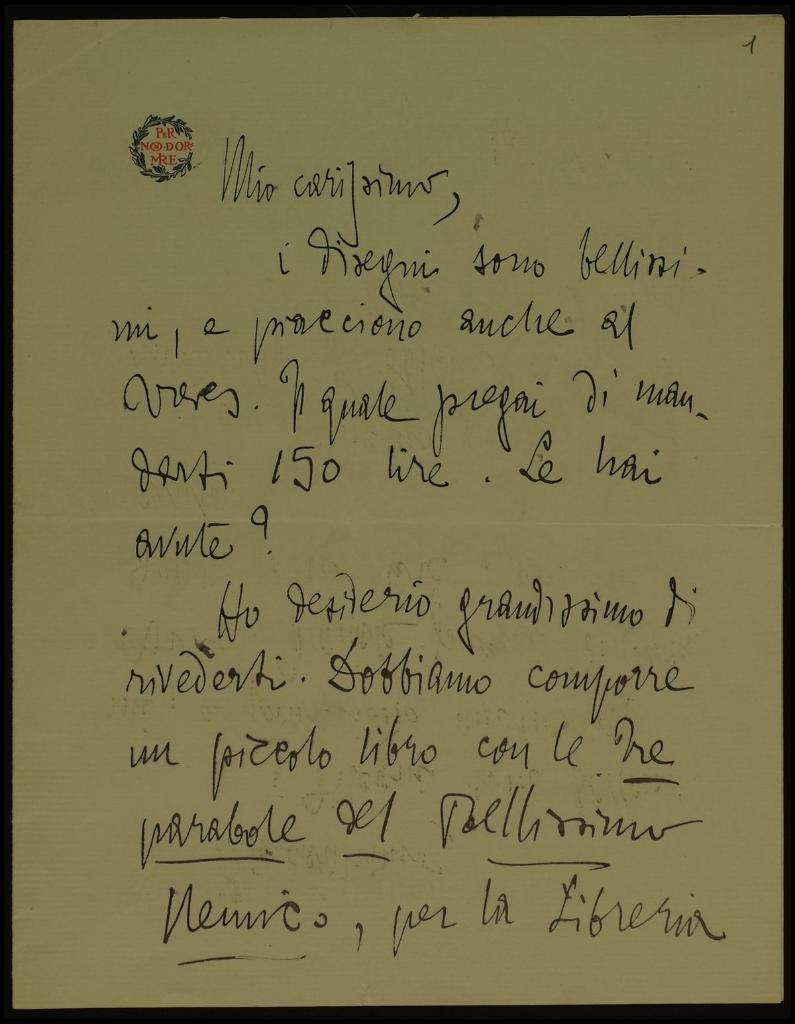 1
PER
NON DOR
MIRE
Mio carissimo,
i disegni sono bellissi-
mi, e piacciono anche al
Treves. Il quale pregai di man-
darti 150 lire. Le hai
avute?
Ho desiderio grandissimo di
rivederti. Dobbiamo comporre
un piccolo libro con le Tre
parabole del Bellissimo
Nemico, per la Libreria